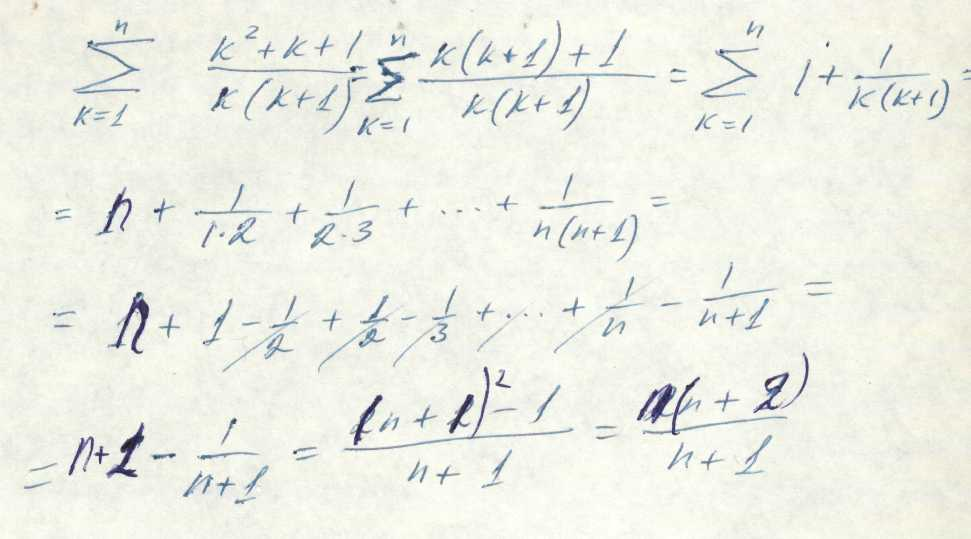 \sum_{k=1}^{n} \frac{k^2+k+1}{k(k+1)} = \sum_{k=1}^{n} \frac{k(k+1)+1}{k(k+1)} = \sum_{k=1}^{n} 1 + \frac{1}{k(k+1)} =
= n + \frac{1}{1 \cdot 2} + \frac{1}{2 \cdot 3} + \dots + \frac{1}{n(n+1)} =
= n + 1 - \frac{1}{2} + \frac{1}{2} - \frac{1}{3} + \dots + \frac{1}{n} - \frac{1}{n+1} =
= n+1 - \frac{1}{n+1} = \frac{(n+1)^2 - 1}{n+1} = \frac{n(n+2)}{n+1}